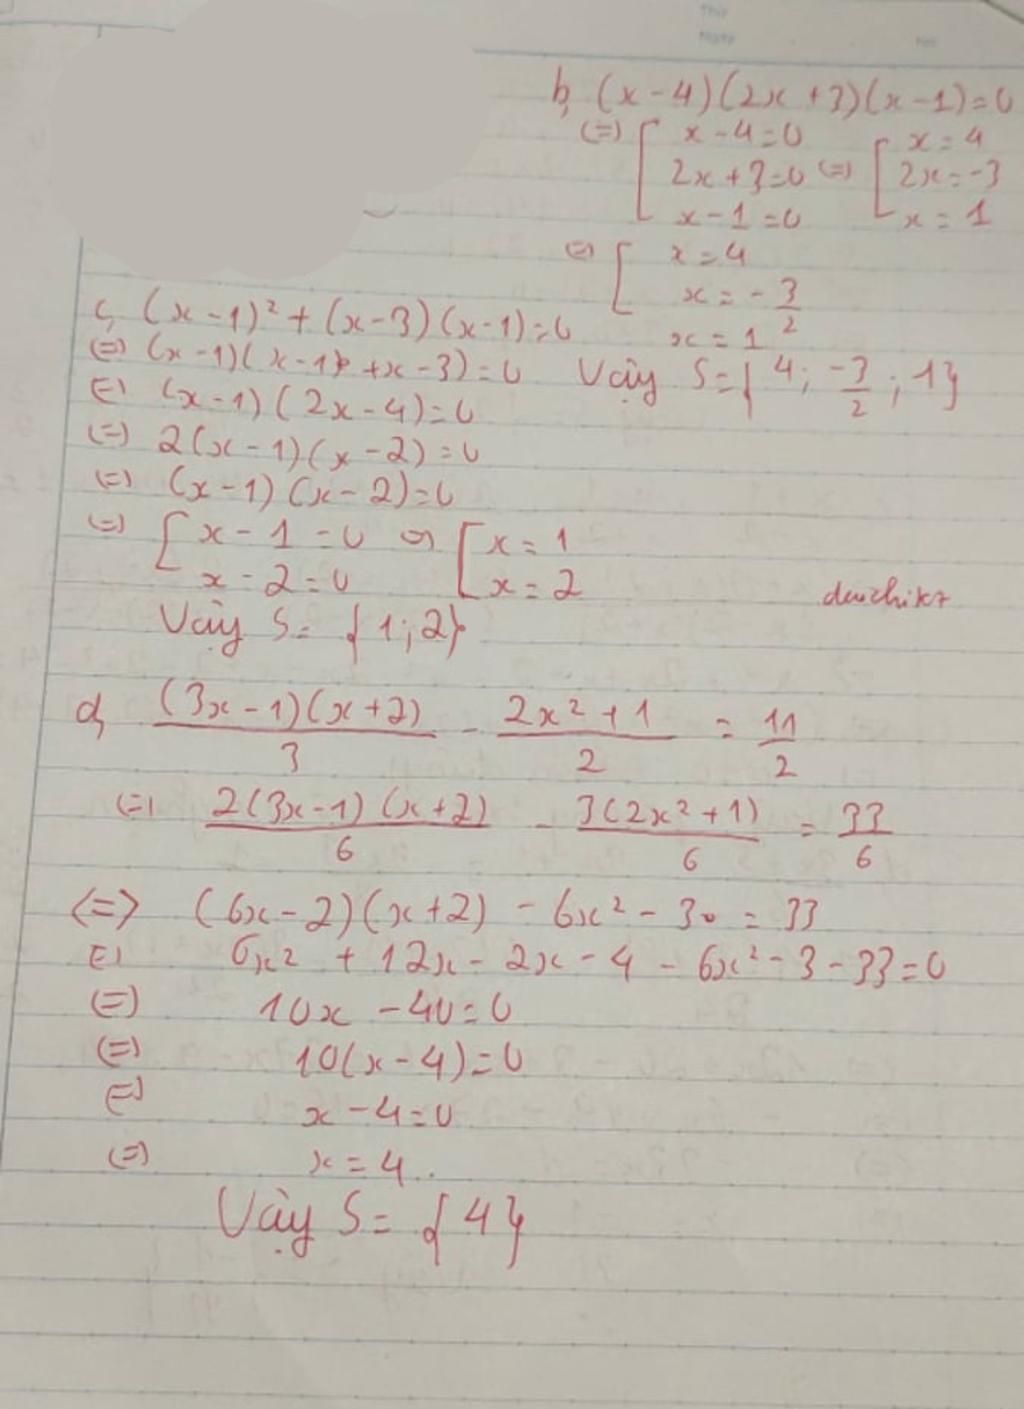 Thứ
Ngày
No
b, (x-4)(2x+3)(x-1)=0
(=) [ x-4=0 ; 2x+3=0 ; x-1=0 (=) [ x=4 ; 2x=-3 ; x=1
(=) [ x=4 ; x=-3/2 ; x=1
Vậy S={4; -3/2; 1}
c, (x-1)²+(x-3)(x-1)=0
(=) (x-1)(x-1+x-3)=0
(=) (x-1)(2x-4)=0
(=) 2(x-1)(x-2)=0
(=) (x-1)(x-2)=0
(=) [ x-1=0 ; x-2=0 (=) [ x=1 ; x=2
Vậy S={1;2}
d, (3x-1)(x+2)/3 - 2x²+1/2 = 11/2
(=) 2(3x-1)(x+2)/6 - 3(2x²+1)/6 = 33/6
<=> (6x-2)(x+2) - 6x² - 3 = 33
(=) 6x² + 12x - 2x - 4 - 6x² - 3 - 33 = 0
(=) 10x - 40 = 0
(=) 10(x-4)=0
(=) x-4=0
(=) x=4.
Vậy S={4}